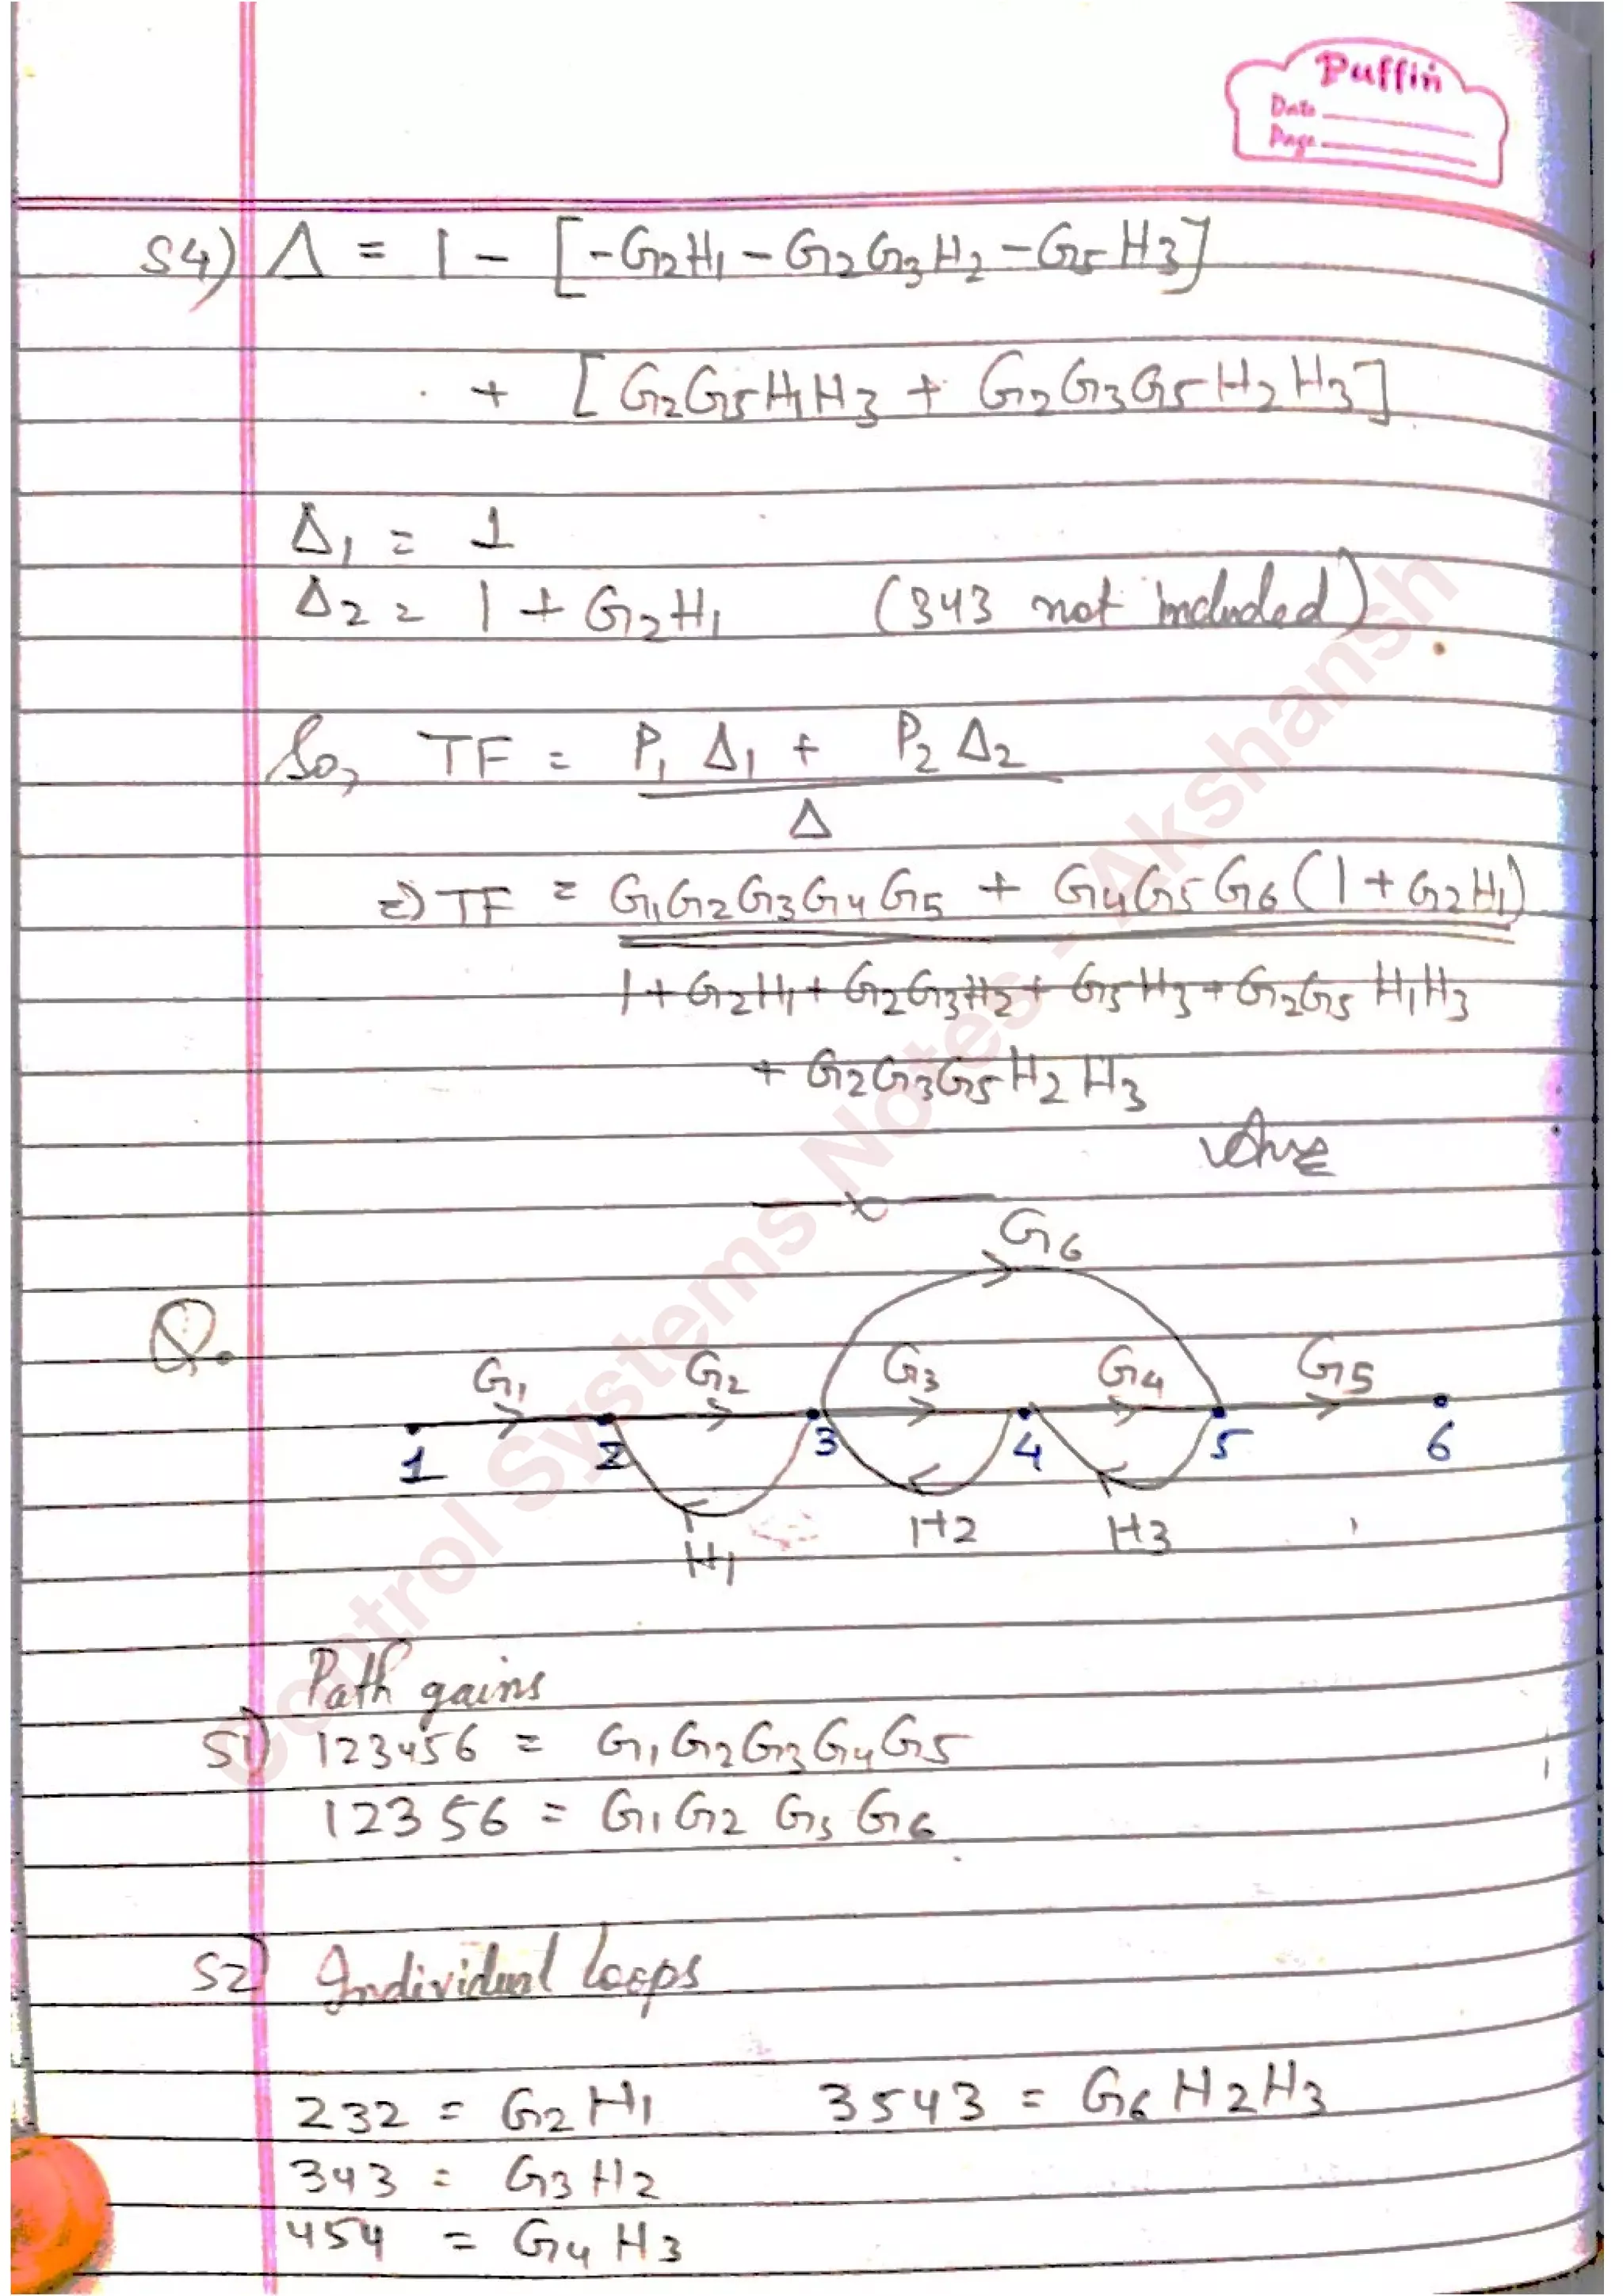 Puffin
Date
Page
S4) Δ = 1 - [-G2H1 - G2G3H2 - G5H3]
+ [G2G5H1H3 + G2G3G5H2H3]
Δ1 = 1
Δ2 = 1 + G2H1 (343 not included)
So, TF = P1 Δ1 + P2 Δ2
Δ
=) TF = G1G2G3G4G5 + G4G5G6(1+G2H1)
1+G2H1+G2G3H2+G5H3+G2G5H1H3
+ G2G3G5H2H3
Ans
x
G6
Q.
G1 G2 G3 G4 G5
1 2 3 4 5 6
H1 H2 H3
Path gains
S1) 123456 = G1G2G3G4G5
12356 = G1G2G5G6
S2) Individual loops
232 = G2H1 3543 = G6H2H3
343 = G3H2
454 = G4H3
Control Systems Notes - Akshansh